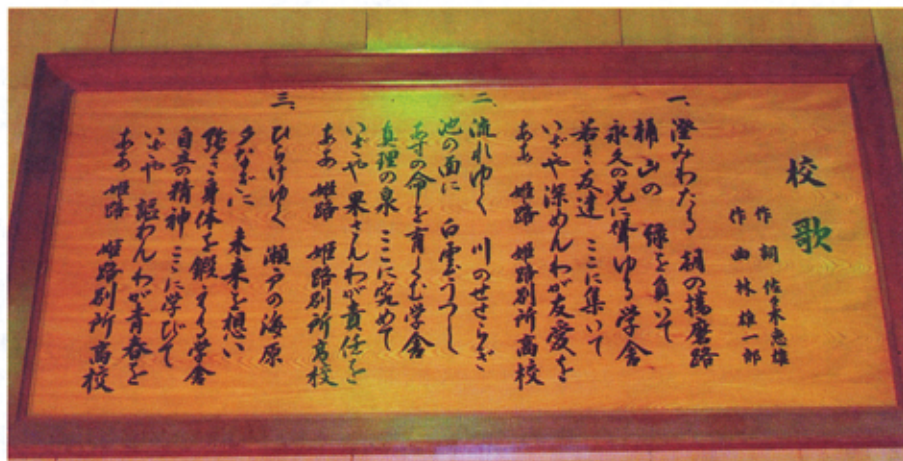 校歌
作詞 佐々木忠雄
作曲 林雄一郎
一、澄みわたる 朝の播磨路
桶山の 緑を負いて
永久の光に聳ゆる学舎
若き友達 ここに集いて
いざや深めんわが友愛を
ああ 姫路 姫路別所高校
二、流れゆく 川のせせらぎ
池の面に 白雲うつし
あすの命を育くむ学舎
真理の泉 ここに究めて
いざや果さんわが責任を
ああ 姫路 姫路別所高校
三、ひらけゆく 瀬戸の海原
夕なぎに 未来を想い
強き身体を鍛える学舎
自立の精神 ここに学びて
いざや 謳わんわが青春を
ああ 姫路 姫路別所高校